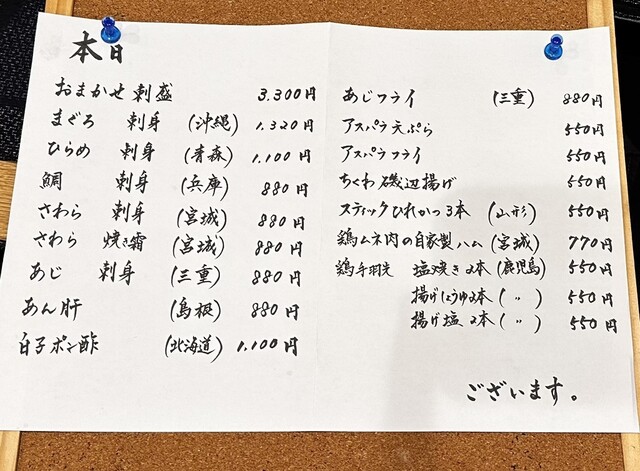 本日
おまかせ刺盛 3.300円
まぐろ 刺身 (沖縄) 1.320円
ひらめ 刺身 (青森) 1.100円
鯛 刺身 (兵庫) 880円
さわら 刺身 (宮城) 880円
さわら 焼き霜 (宮城) 880円
あじ 刺身 (三重) 880円
あん肝 (島根) 880円
白子ポン酢 (北海道) 1.100円
あじフライ (三重) 880円
アスパラ天ぷら 550円
アスパラフライ 550円
ちくわ磯辺揚げ 550円
スティックひれかつ3本 (山形) 550円
鶏ムネ肉の自家製ハム (宮城) 770円
鶏手羽先 塩焼き2本 (鹿児島) 550円
揚げしょうゆ2本 (〃) 550円
揚げ塩 2本 (〃) 550円
ございます。